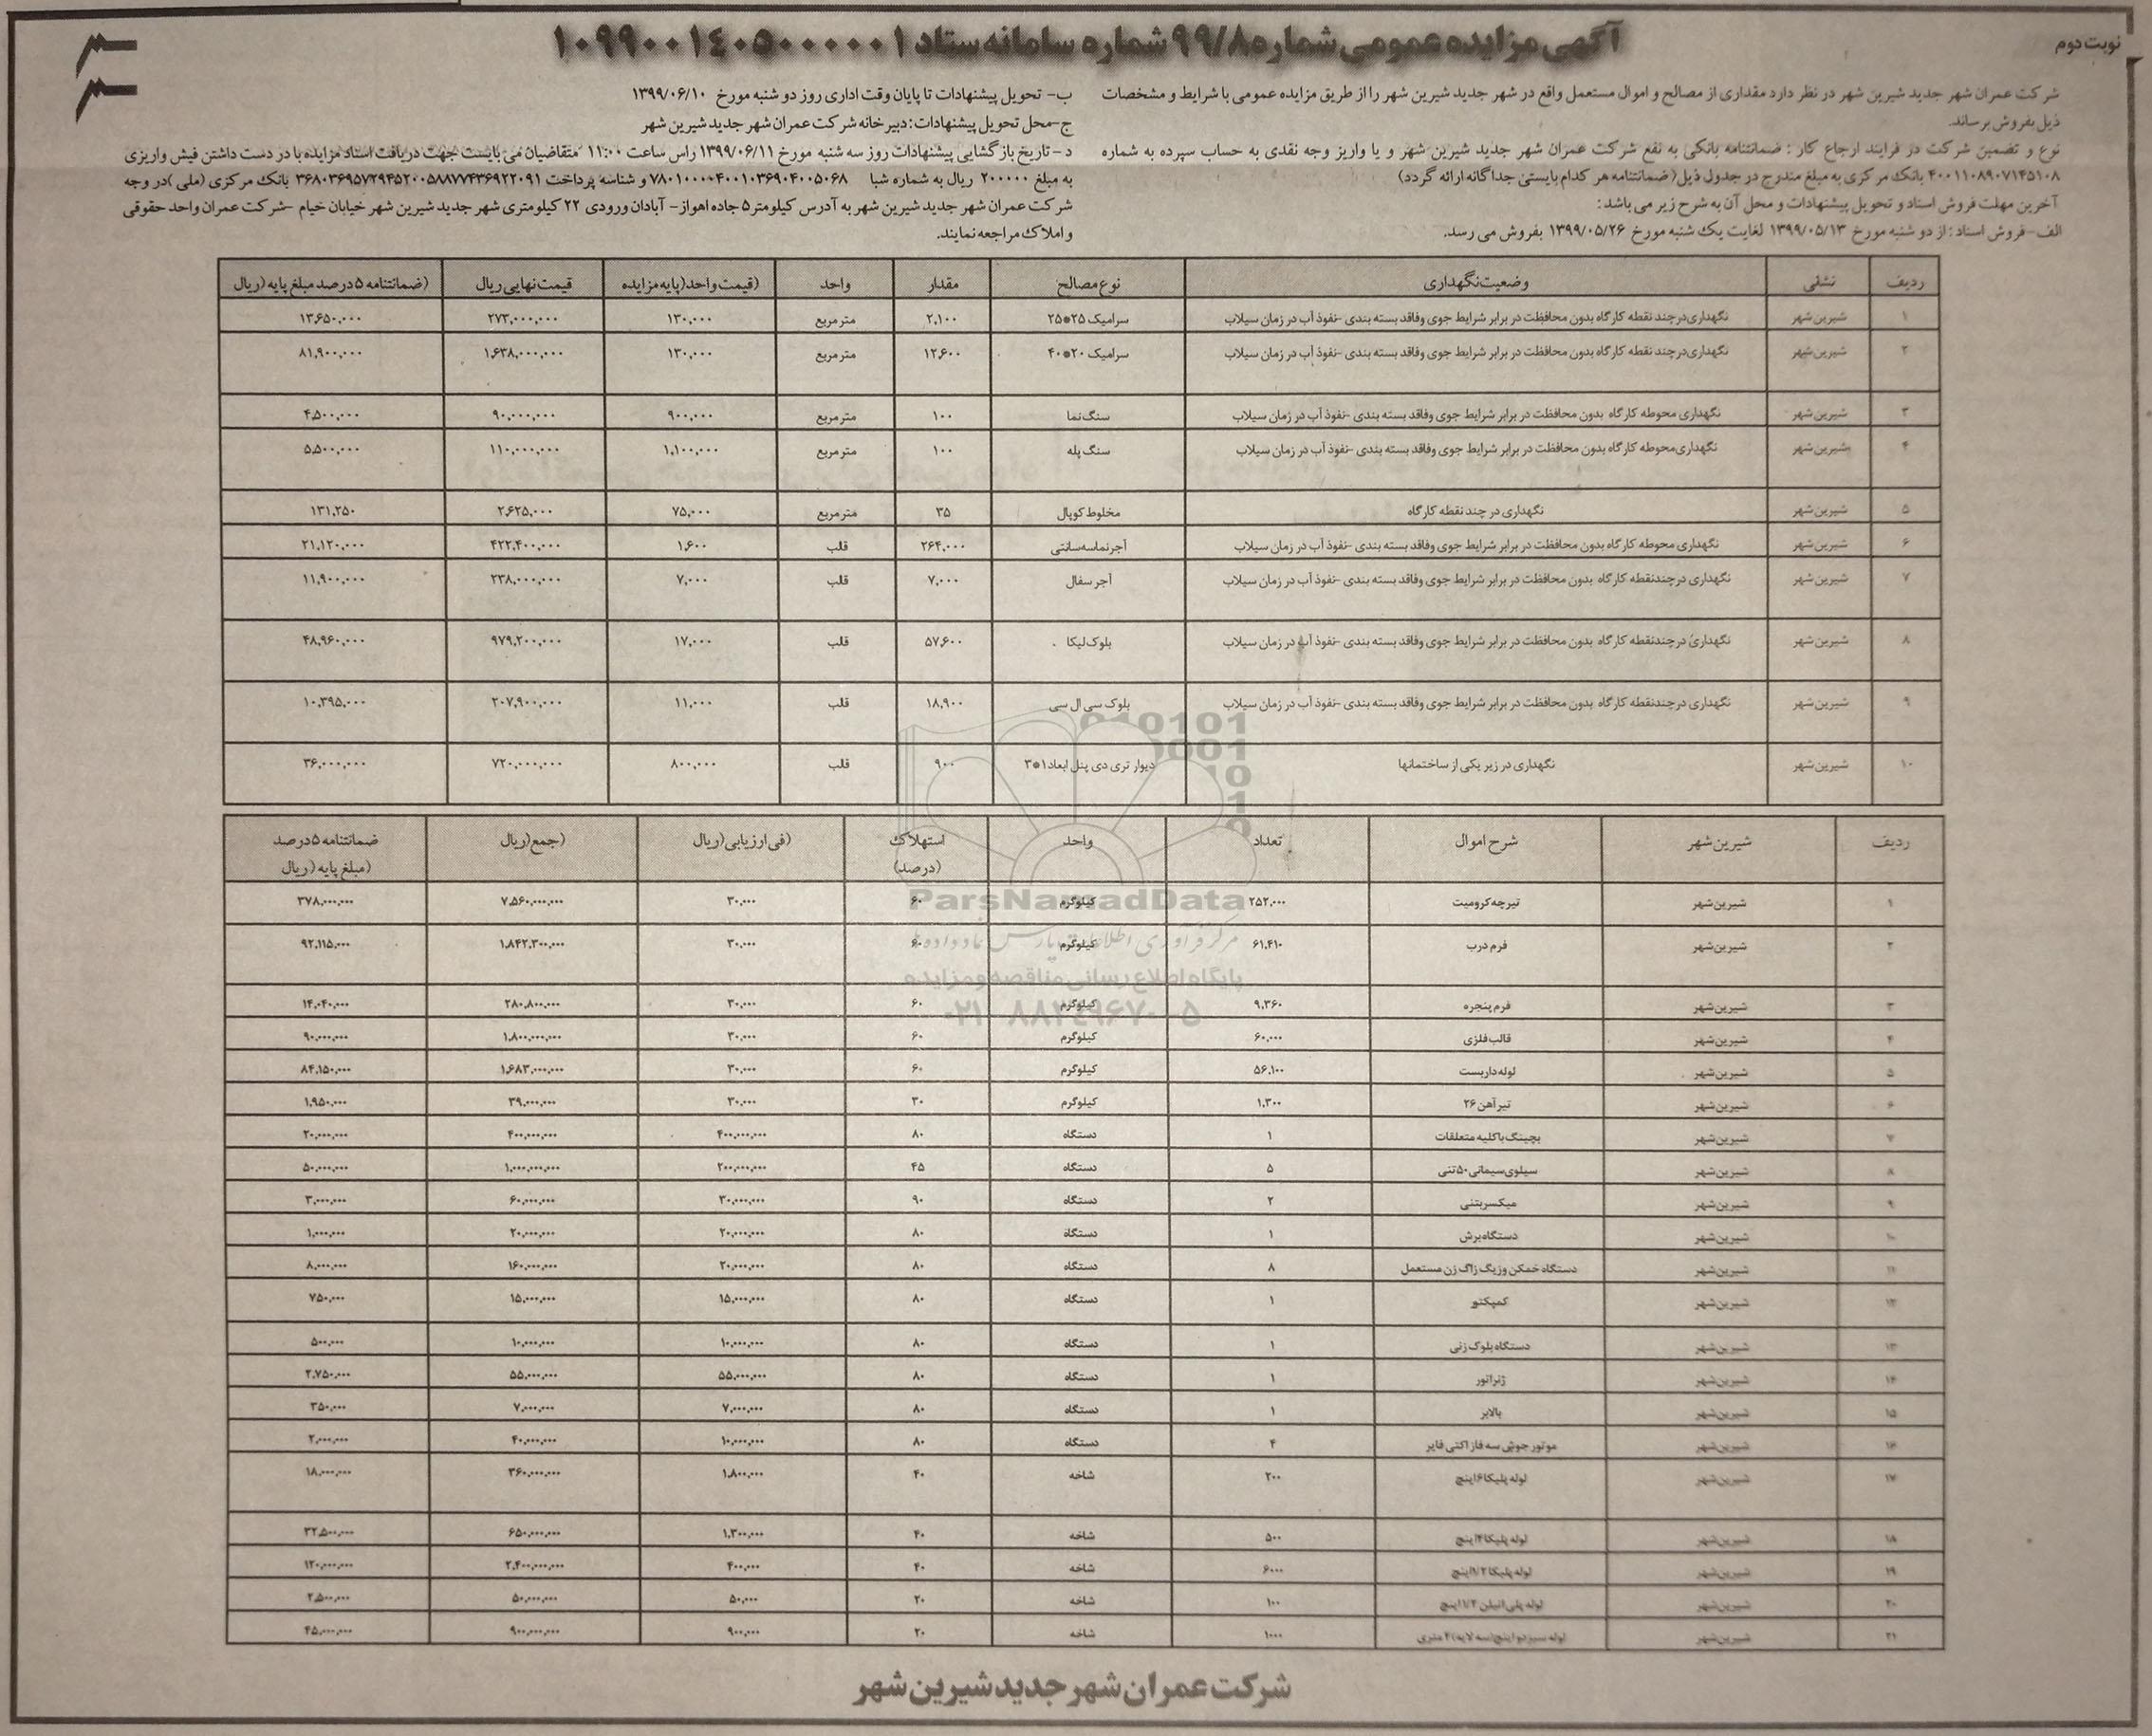 نوبت دوم
آگهی مزایده عمومی شماره ۹۹/۸ شماره سامانه ستاد ۱۰۹۹۰۰۱۴۰۵۰۰۰۰۰۱
شرکت عمران شهر جدید شیرین شهر در نظر دارد مقداری از مصالح و اموال مستعمل واقع در شهر جدید شیرین شهر را از طریق مزایده عمومی با شرایط و مشخصات
ذیل بفروش برساند.
نوع و تضمین شرکت در فرایند ارجاع کار : ضمانتنامه بانکی به نفع شرکت عمران شهر جدید شیرین شهر و یا واریز وجه نقدی به حساب سپرده به شماره
۴۰۰۱۱۰۸۹۰۷۱۴۵۱۰۸ بانک مرکزی به مبلغ مندرج در جدول ذیل( ضمانتنامه هر کدام بایستی جداگانه ارائه گردد)
آخرین مهلت فروش اسناد و تحویل پیشنهادات و محل آن به شرح زیر می باشد :
الف-فروش اسناد : از دو شنبه مورخ ۱۳۹۹/۰۵/۱۳ لغایت یک شنبه مورخ ۱۳۹۹/۰۵/۲۶ بفروش می رسد.
ب- تحویل پیشنهادات تا پایان وقت اداری روز دو شنبه مورخ ۱۳۹۹/۰۶/۱۰
ج-محل تحویل پیشنهادات : دبیرخانه شرکت عمران شهر جدید شیرین شهر
د - تاریخ بازگشایی پیشنهادات روز سه شنبه مورخ ۱۳۹۹/۰۶/۱۱ راس ساعت ۱۱:۰۰ متقاضیان می بایست جهت دریافت اسناد مزایده با در دست داشتن فیش واریزی
به مبلغ ۲۰۰۰۰۰ ریال به شماره شبا ۷۸۰۱۰۰۰۰۴۰۰۱۰۳۶۹۰۴۰۰۵۰۶۸ و شناسه پرداخت ۳۶۸۰۳۶۹۵۷۲۹۴۵۲۰۰۵۸۸۷۷۴۳۶۹۲۲۰۹۱ بانک مرکزی (ملی )در وجه
شرکت عمران شهر جدید شیرین شهر به آدرس کیلومتر۵ جاده اهواز- آبادان ورودی ۲۲ کیلومتری شهر جدید شیرین شهر خیابان خیام -شرکت عمران واحد حقوقی
و املاک مراجعه نمایند.
ردیف نشانی وضعیت نگهداری نوع مصالح مقدار واحد (قیمت واحد(پایه مزایده قیمت نهایی ریال (ضمانتنامه ۵ درصد مبلغ پایه (ریال
۱ شیرین شهر نگهداری در چند نقطه کارگاه بدون محافظت در برابر شرایط جوی وفاقد بسته بندی -نفوذ آب در زمان سیلاب سرامیک ۲۵*۲۵ ۲,۱۰۰ متر مربع ۱۳۰,۰۰۰ ۲۷۳,۰۰۰,۰۰۰ ۱۳,۶۵۰,۰۰۰
۲ شیرین شهر نگهداری در چند نقطه کارگاه بدون محافظت در برابر شرایط جوی وفاقد بسته بندی -نفوذ آب در زمان سیلاب سرامیک ۲۰*۴۰ ۱۲,۶۰۰ متر مربع ۱۳۰,۰۰۰ ۱,۶۳۸,۰۰۰,۰۰۰ ۸۱,۹۰۰,۰۰۰
۳ شیرین شهر نگهداری محوطه کارگاه بدون محافظت در برابر شرایط جوی وفاقد بسته بندی -نفوذ آب در زمان سیلاب سنگ نما ۱۰۰ متر مربع ۹۰۰,۰۰۰ ۹۰,۰۰۰,۰۰۰ ۴,۵۰۰,۰۰۰
۴ شیرین شهر نگهداری محوطه کارگاه بدون محافظت در برابر شرایط جوی وفاقد بسته بندی -نفوذ آب در زمان سیلاب سنگ پله ۱۰۰ متر مربع ۱,۱۰۰,۰۰۰ ۱۱۰,۰۰۰,۰۰۰ ۵,۵۰۰,۰۰۰
۵ شیرین شهر نگهداری در چند نقطه کارگاه مخلوط کوپال ۳۵ متر مربع ۷۵,۰۰۰ ۲,۶۲۵,۰۰۰ ۱۳۱,۲۵۰
۶ شیرین شهر نگهداری محوطه کارگاه بدون محافظت در برابر شرایط جوی وفاقد بسته بندی -نفوذ آب در زمان سیلاب آجر نما سه سانتی ۲۶۴,۰۰۰ قلب ۱,۶۰۰ ۴۲۲,۴۰۰,۰۰۰ ۲۱,۱۲۰,۰۰۰
۷ شیرین شهر نگهداری در چند نقطه کارگاه بدون محافظت در برابر شرایط جوی وفاقد بسته بندی -نفوذ آب در زمان سیلاب آجر سفال ۷,۰۰۰ قلب ۷,۰۰۰ ۲۳۸,۰۰۰,۰۰۰ ۱۱,۹۰۰,۰۰۰
۸ شیرین شهر نگهداری در چند نقطه کارگاه بدون محافظت در برابر شرایط جوی وفاقد بسته بندی -نفوذ آب در زمان سیلاب بلوک لیکا ۵۷,۶۰۰ قلب ۱۷,۰۰۰ ۹۷۹,۲۰۰,۰۰۰ ۴۸,۹۶۰,۰۰۰
۹ شیرین شهر نگهداری در چند نقطه کارگاه بدون محافظت در برابر شرایط جوی وفاقد بسته بندی -نفوذ آب در زمان سیلاب بلوک سی ال سی ۱۸,۹۰۰ قلب ۱۱,۰۰۰ ۲۰۷,۹۰۰,۰۰۰ ۱۰,۳۹۵,۰۰۰
۱۰ شیرین شهر نگهداری در زیر یکی از ساختمانها دیوار تری دی پنل ابعاد ۱*۳ ۹۰۰ قلب ۸۰۰,۰۰۰ ۷۲۰,۰۰۰,۰۰۰ ۳۶,۰۰۰,۰۰۰
ردیف شیرین شهر شرح اموال تعداد واحد استهلاک (فی ارزیابی (ریال (جمع(ریال ضمانتنامه ۵درصد
(درصد) (مبلغ پایه (ریال
۱ شیرین شهر تیرچه کرومیت ۲۵۲,۰۰۰ کیلوگرم ۶۰ ۳۰,۰۰۰ ۷,۵۶۰,۰۰۰,۰۰۰ ۳۷۸,۰۰۰,۰۰۰
۲ شیرین شهر فرم درب ۶۱,۴۱۰ کیلوگرم ۶۰ ۳۰,۰۰۰ ۱,۸۴۲,۳۰۰,۰۰۰ ۹۲,۱۱۵,۰۰۰
۳ شیرین شهر فرم پنجره ۹,۳۶۰ کیلوگرم ۶۰ ۳۰,۰۰۰ ۲۸۰,۸۰۰,۰۰۰ ۱۴,۰۴۰,۰۰۰
۴ شیرین شهر قالب فلزی ۶۰,۰۰۰ کیلوگرم ۶۰ ۳۰,۰۰۰ ۱,۸۰۰,۰۰۰,۰۰۰ ۹۰,۰۰۰,۰۰۰
۵ شیرین شهر لوله داربست ۵۶,۱۰۰ کیلوگرم ۶۰ ۳۰,۰۰۰ ۱,۶۸۳,۰۰۰,۰۰۰ ۸۴,۱۵۰,۰۰۰
۶ شیرین شهر تیر آهن ۲۶ ۱,۳۰۰ کیلوگرم ۳۰ ۳۰,۰۰۰ ۳۹,۰۰۰,۰۰۰ ۱,۹۵۰,۰۰۰
۷ شیرین شهر بچینگ با کلیه متعلقات ۱ دستگاه ۸۰ ۴۰۰,۰۰۰,۰۰۰ ۴۰۰,۰۰۰,۰۰۰ ۲۰,۰۰۰,۰۰۰
۸ شیرین شهر سیلوی سیمانی ۵۰ تنی ۵ دستگاه ۴۵ ۲۰۰,۰۰۰,۰۰۰ ۱,۰۰۰,۰۰۰,۰۰۰ ۵۰,۰۰۰,۰۰۰
۹ شیرین شهر میکسر بتنی ۲ دستگاه ۹۰ ۳۰,۰۰۰,۰۰۰ ۶۰,۰۰۰,۰۰۰ ۳,۰۰۰,۰۰۰
۱۰ شیرین شهر دستگاه برش ۱ دستگاه ۸۰ ۲۰,۰۰۰,۰۰۰ ۲۰,۰۰۰,۰۰۰ ۱,۰۰۰,۰۰۰
۱۱ شیرین شهر دستگاه خمکن و زیگ زاگ زن مستعمل ۸ دستگاه ۸۰ ۲۰,۰۰۰,۰۰۰ ۱۶۰,۰۰۰,۰۰۰ ۸,۰۰۰,۰۰۰
۱۲ شیرین شهر کمپکتور ۱ دستگاه ۸۰ ۱۵,۰۰۰,۰۰۰ ۱۵,۰۰۰,۰۰۰ ۷۵۰,۰۰۰
۱۳ شیرین شهر دستگاه بلوک زنی ۱ دستگاه ۸۰ ۱۰,۰۰۰,۰۰۰ ۱۰,۰۰۰,۰۰۰ ۵۰۰,۰۰۰
۱۴ شیرین شهر ژنراتور ۱ دستگاه ۸۰ ۵۵,۰۰۰,۰۰۰ ۵۵,۰۰۰,۰۰۰ ۲,۷۵۰,۰۰۰
۱۵ شیرین شهر بالابر ۱ دستگاه ۸۰ ۷,۰۰۰,۰۰۰ ۷,۰۰۰,۰۰۰ ۳۵۰,۰۰۰
۱۶ شیرین شهر موتور جوش سه فاز اکتی فایر ۴ دستگاه ۸۰ ۱۰,۰۰۰,۰۰۰ ۴۰,۰۰۰,۰۰۰ ۲,۰۰۰,۰۰۰
۱۷ شیرین شهر لوله پلیکا ۶ اینچ ۲۰۰ شاخه ۴۰ ۱,۸۰۰,۰۰۰ ۳۶۰,۰۰۰,۰۰۰ ۱۸,۰۰۰,۰۰۰
۱۸ شیرین شهر لوله پلیکا ۴ اینچ ۵۰۰ شاخه ۴۰ ۱,۳۰۰,۰۰۰ ۶۵۰,۰۰۰,۰۰۰ ۳۲,۵۰۰,۰۰۰
۱۹ شیرین شهر لوله پلیکا ۱/۲ اینچ ۶۰۰۰ شاخه ۴۰ ۴۰۰,۰۰۰ ۲,۴۰۰,۰۰۰,۰۰۰ ۱۲۰,۰۰۰,۰۰۰
۲۰ شیرین شهر لوله پلی اتیلن ۱/۲ اینچ ۱۰۰ شاخه ۲۰ ۵۰,۰۰۰ ۵۰,۰۰۰,۰۰۰ ۲,۵۰۰,۰۰۰
۲۱ شیرین شهر لوله سبز دو اینچ(سه لایه) ۴ متری ۱۰۰۰ شاخه ۲۰ ۹۰۰,۰۰۰ ۹۰۰,۰۰۰,۰۰۰ ۴۵,۰۰۰,۰۰۰
شرکت عمران شهر جدید شیرین شهر
ParsNamadData
مرکز فرآوری اطلاعات پارس نماد داده ها
پایگاه اطلاع رسانی مناقصه و مزایده
۰۲۱-۸۸۳۴۹۶۷۰-۵